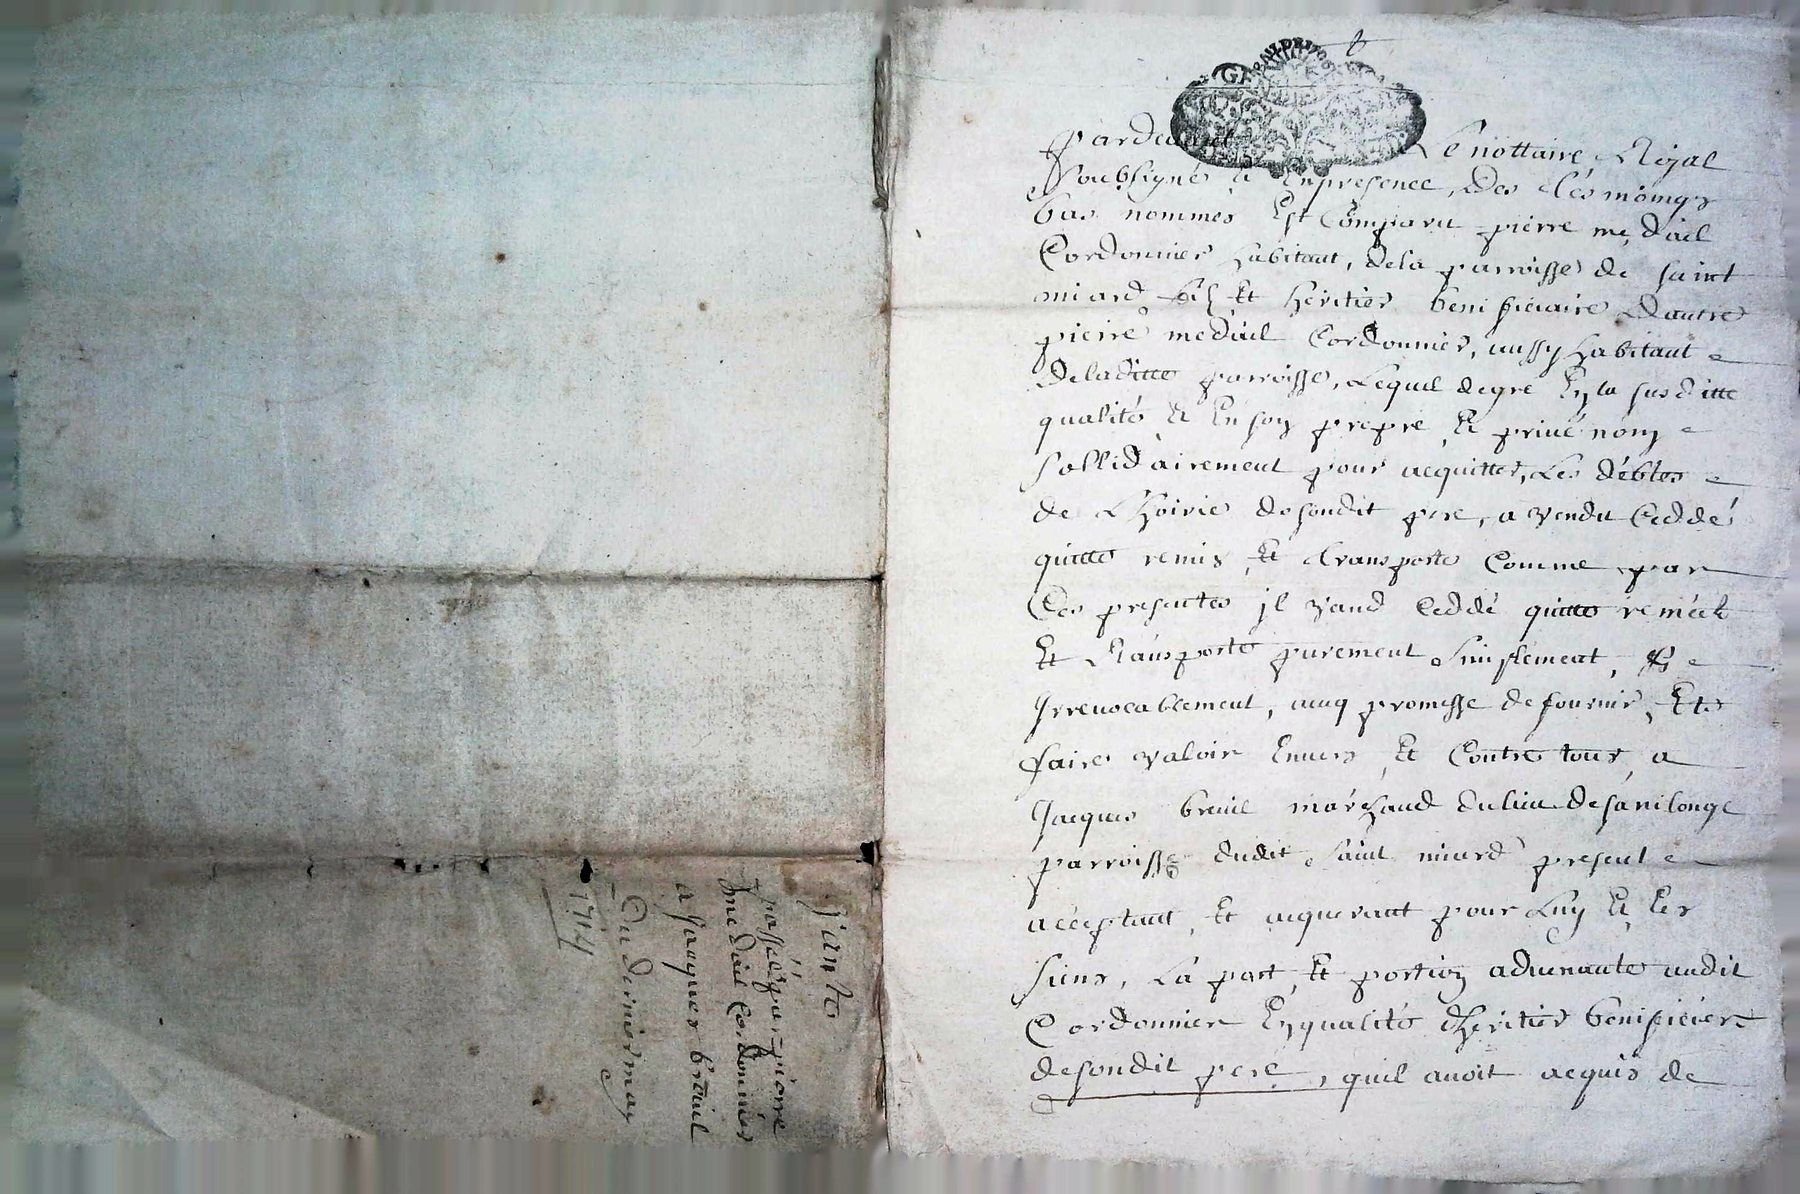 Vante
passée par pierre
medail Cordonnier
a Jacques breuil
Du dernier may
1714
Pardevant Le nottaire Royal
Soubsigné et En presence, Des tesmoings
bas nommes Est Comparu pierre medail
Cordonnier habitant, dela parroisse de saint
miard fils Et heritier benificiaire Dautre
pierre medail Cordonnier, aussy habitant
Deladitte parroisse, Lequel degré En la susditte
qualité Et En son propre Et privé nom
sollidairement pour acquitter, Les debtes
de Lhoirie desondit pere, a vendu Ceddé
quitté remis Et transporté Comme par
Ces presantes il vand Ceddé quitte remect
Et transporte purement simplement, Et
Irrevocablement, avecq promesse de fournir, Et
faire valoir Envers Et Contre tous, a
Jacques breuil marchand du lieu de sanilonge
parroisse dudit saint miard present
acceptant, Et acquerant pour Luy Et Les
siens, La part, Et portion advenante audit
Cordonnier En qualité dheritier benificier
desondit pere, quil avoit acquis de